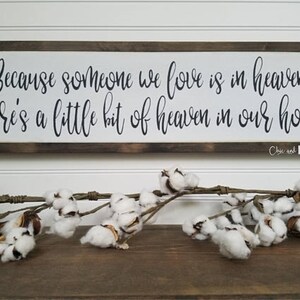 Because someone we love is in heaven
re's a little bit of heaven in our ho
Chic and